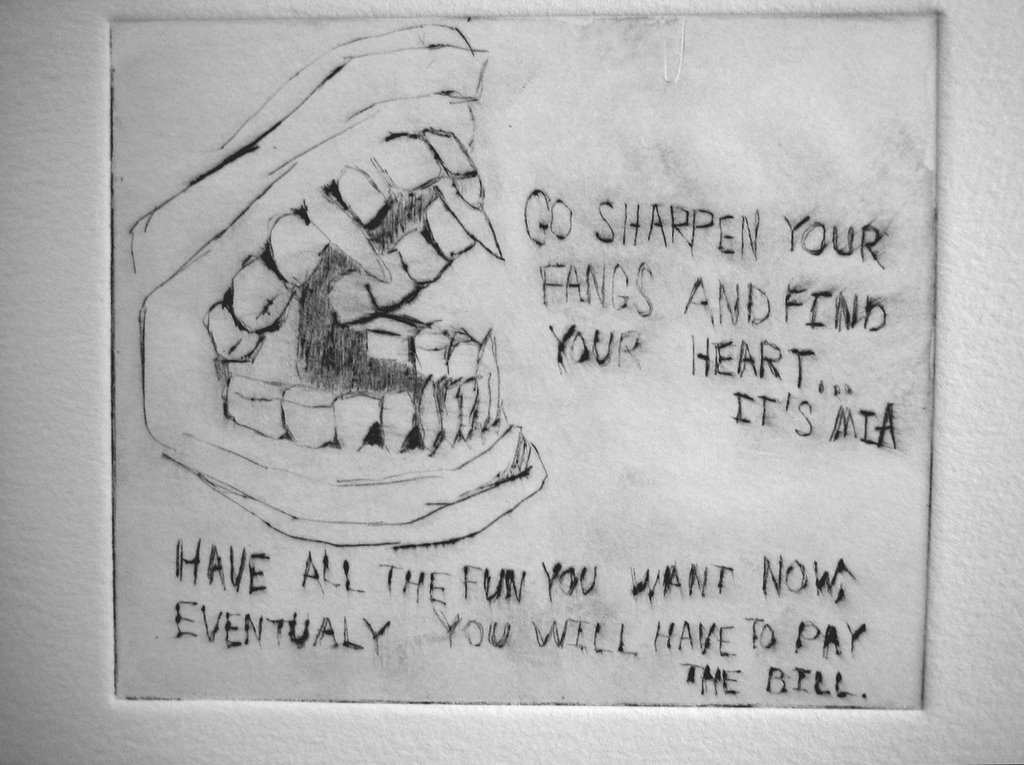 GO SHARPEN YOUR
FANGS AND FIND
YOUR HEART...
IT'S MIA
HAVE ALL THE FUN YOU WANT NOW,
EVENTUALY YOU WILL HAVE TO PAY
THE BILL.